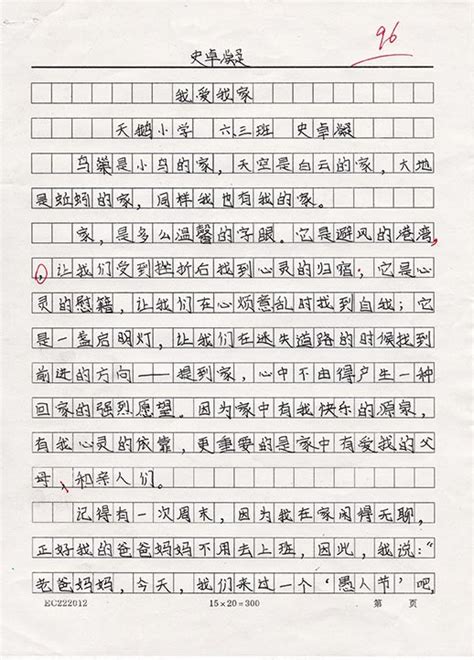 96
史卓凝
我爱我家
天鹅小学 六三班 史卓凝
鸟巢是小鸟的家，天空是白云的家，大地
是蚯蚓的家，同样我也有我的家。
家，是多么温馨的字眼。它是避风的港湾，
，让我们受到挫折后找到心灵的归宿；它是心
灵的慰籍，让我们在心烦意乱时找到自我；它
是一盏启明灯，让我们在迷失道路的时候找到
前进的方向——提到家，心中不由得产生一种
回家的强烈愿望。因为家中有我快乐的源泉，
有我心灵的依靠，更重要的是家中有爱我的父
母、和亲人们。
记得有一次周末，因为我在家闲得无聊，
正好我的爸爸妈妈不用去上班，因此，我说：“
老爸妈妈，今天，我们来过一个‘愚人节’吧，
EC222012 15×20=300 第 页